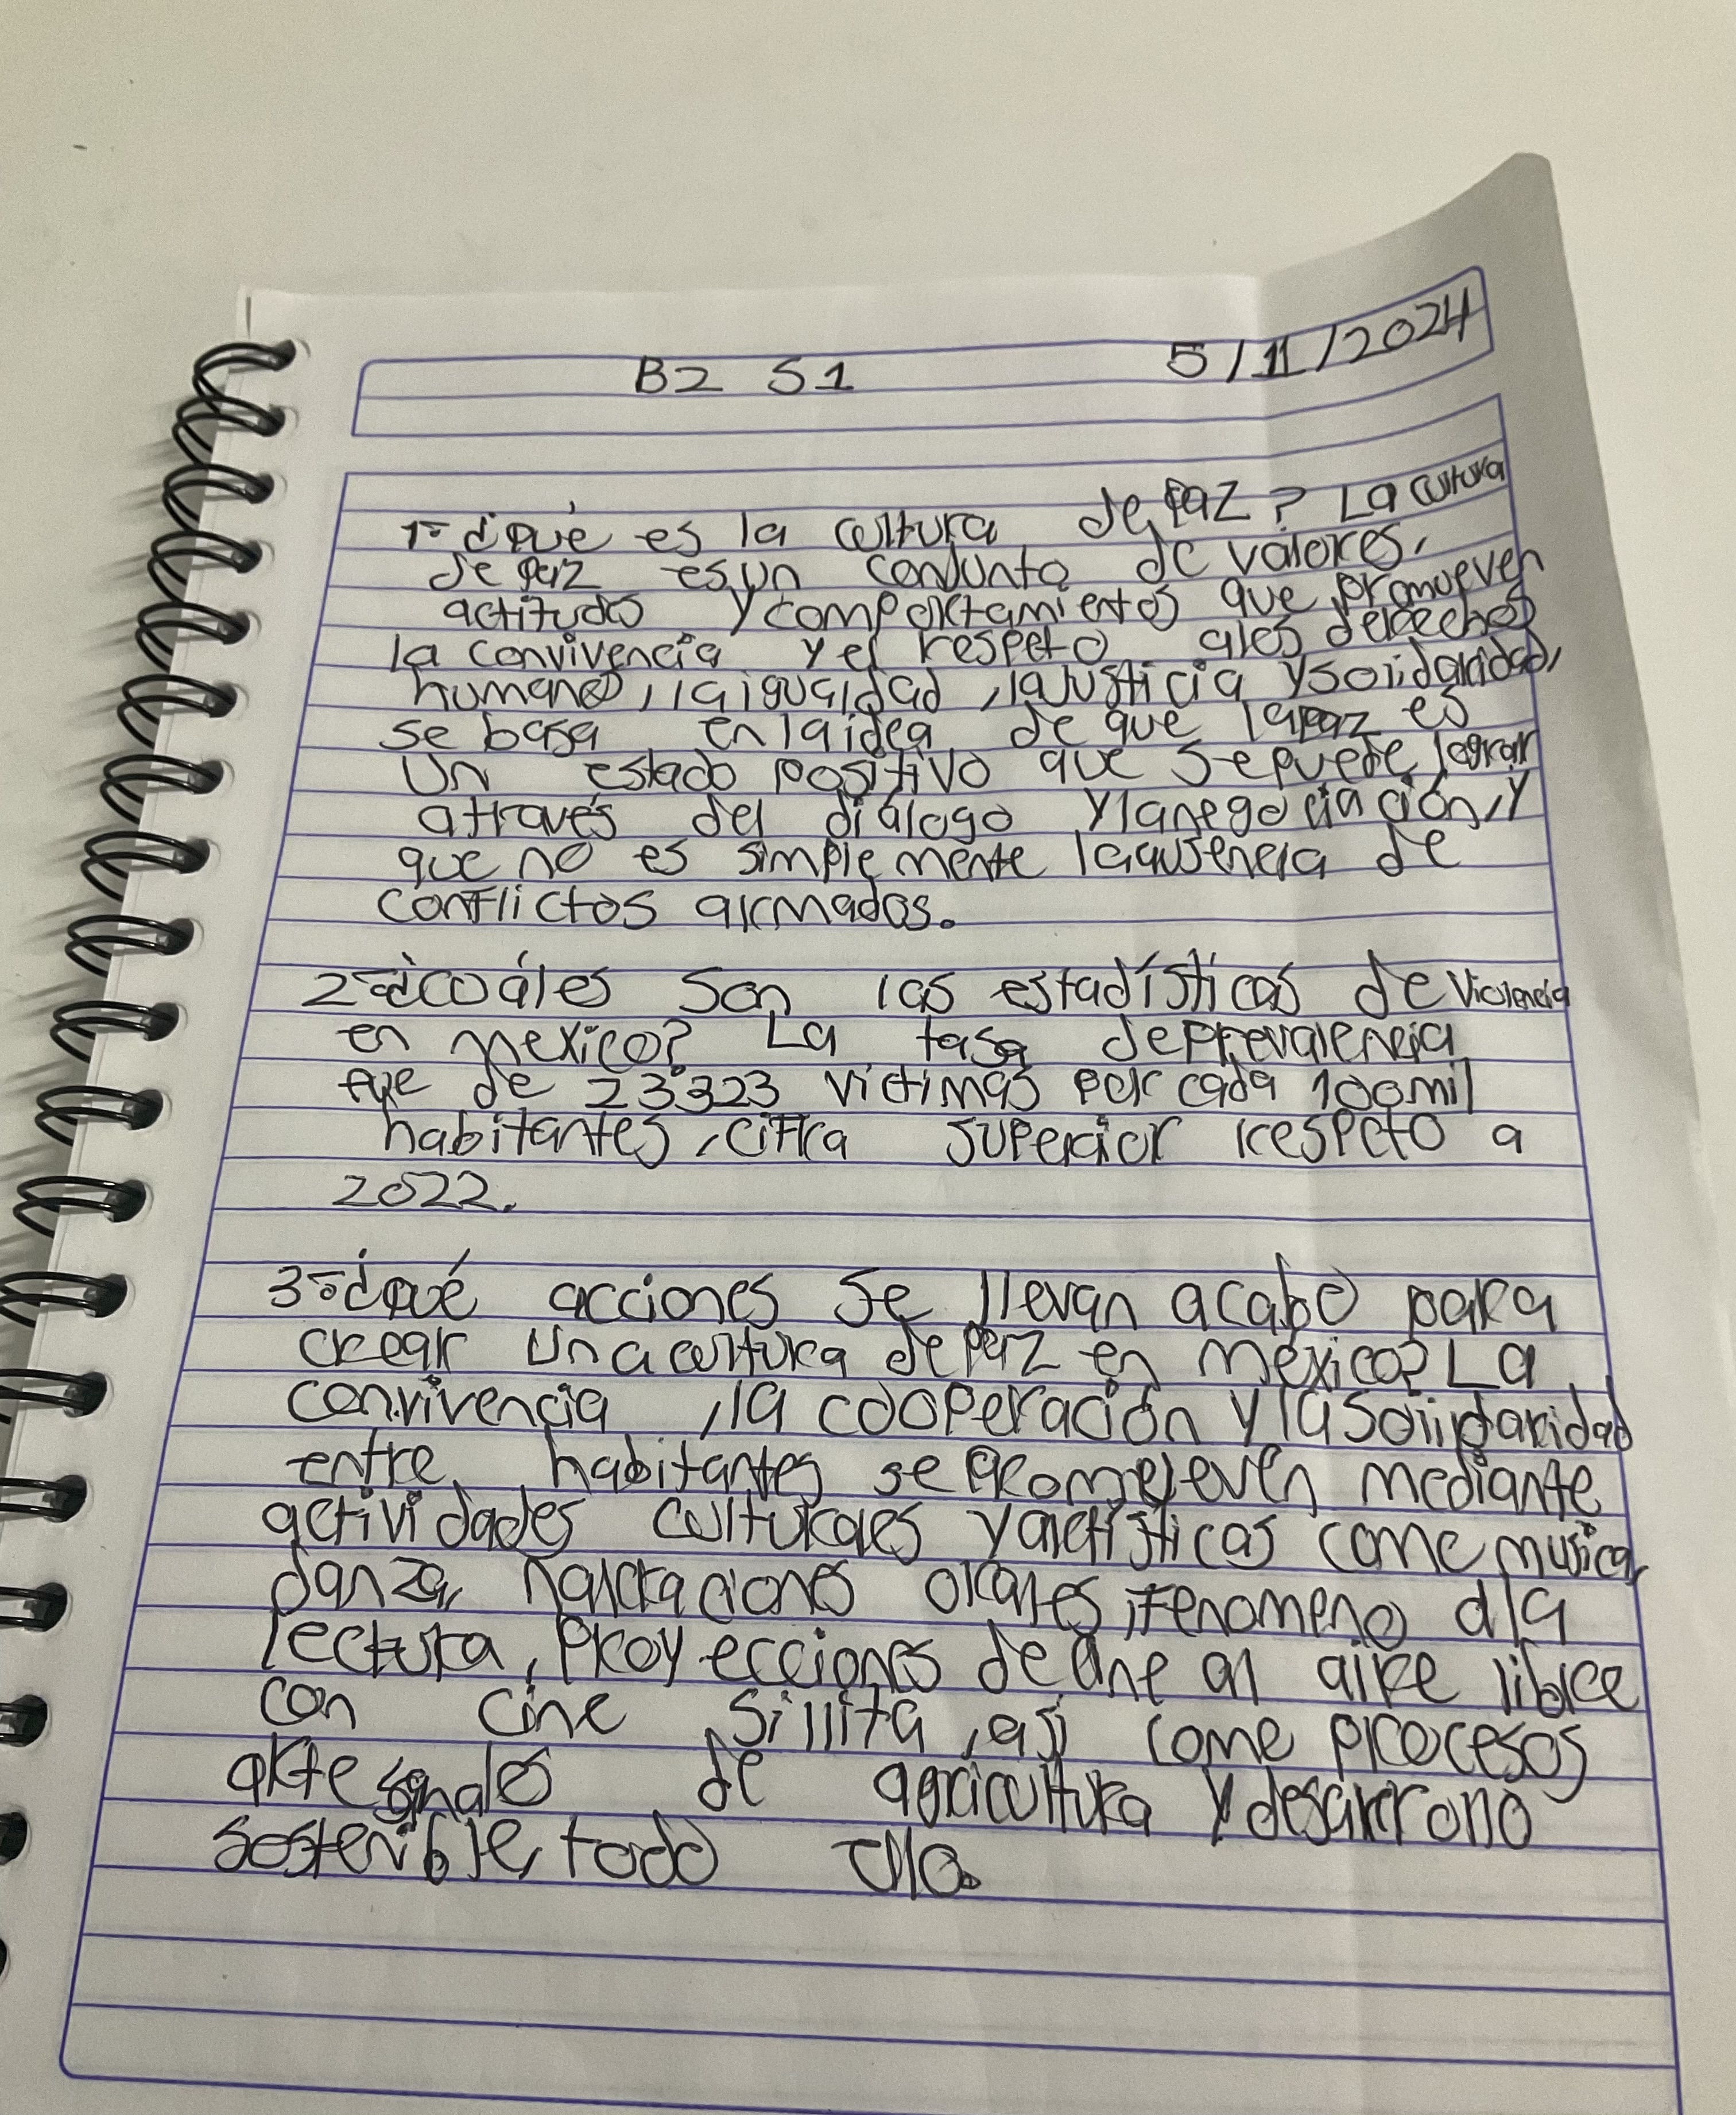 B2 S1 5/11/2024
1-¿qué es la cultura de paz? La cultura
de paz es un conjunto de valores,
actitudes y comportamientos que promueven
la convivencia y el respeto a los derechos
humanos, la igualdad, la justicia y solidaridad,
se basa en la idea de que la paz es
un estado positivo que se puede lograr
através del diálogo y la negociación, y
que no es simplemente la ausencia de
conflictos armados.
2-¿cuáles son las estadísticas de violencia
en mexico? La tasa de prevalencia
fue de 23.323 victimas por cada 100 mil
habitantes, cifra superior respecto a
2022.
3-¿qué acciones se llevan acabo para
crear una cultura de paz en méxico? La
convivencia, la cooperación y la solidaridad
entre habitantes se promueven mediante
actividades culturales y artísticas como musica,
danza, narraciones orales, fenomeno a la
lectura, proyecciones de cine al aire libre
con cine sillita, así como procesos
artesanales de agricultura y desarrollo
sostenible, todo ello.